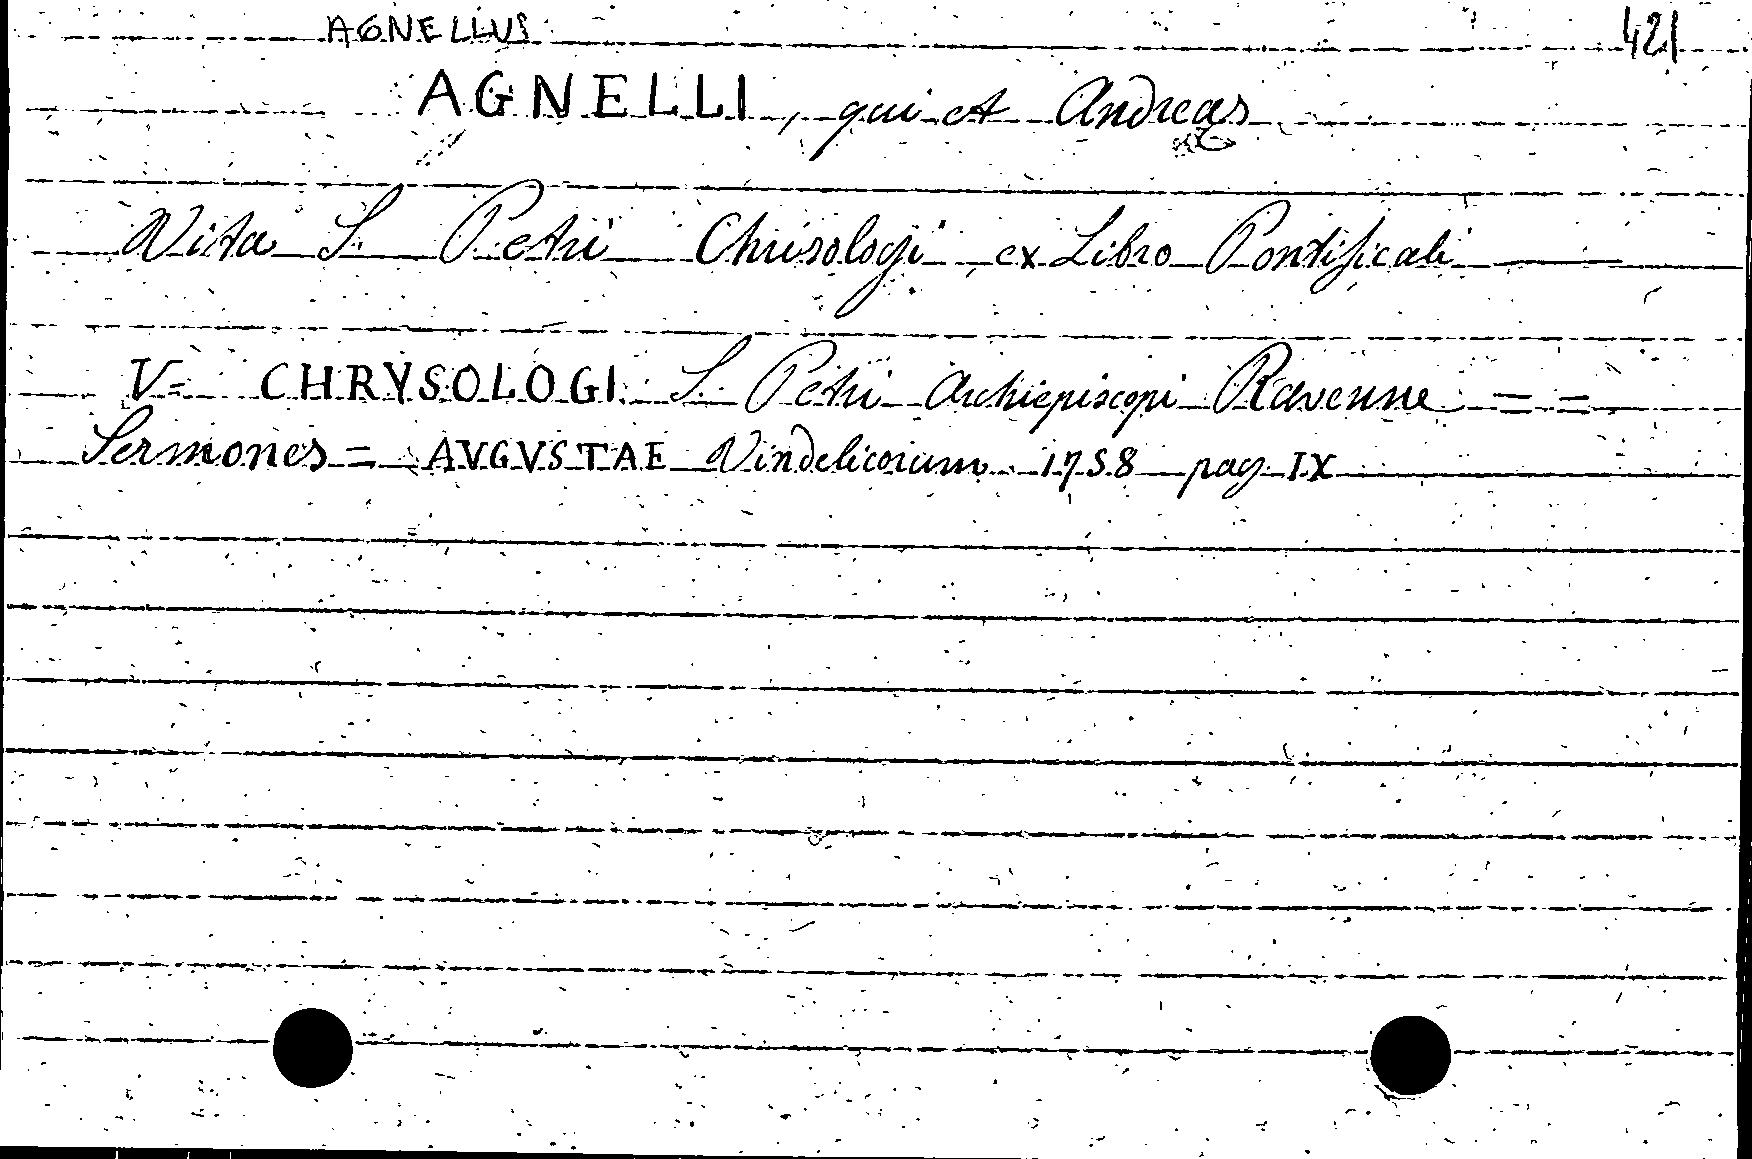 AGNELLUS 421
AGNELLI, qui et Andreas
Vita S. Petri Chrisologi ex Libro Pontificali —
V= CHRYSOLOGI S. Petri Archiepiscopi Ravenne = =
Sermones = AVGVSTAE Vindelicorum 1758 pag. IX